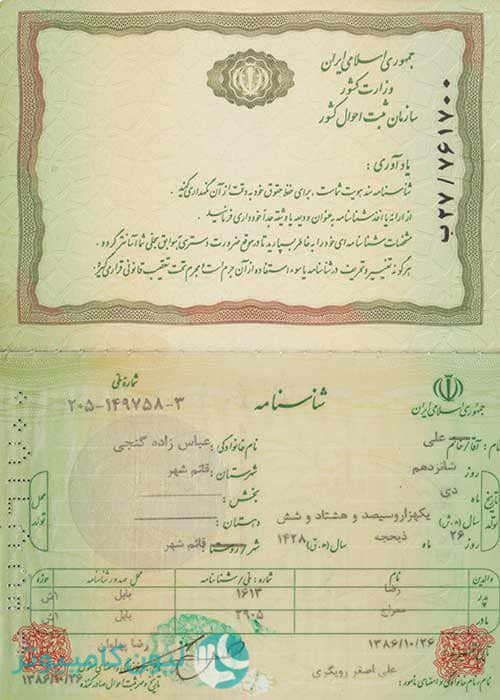 جمهوری اسلامی ایران
وزارت کشور
سازمان ثبت احوال کشور
ب ۲۷/۷۶۱۷۰۰
یادآوری :
شناسنامه سند هویت شماست، برای حفظ حقوق خود به دقت از آن نگهداری کنید.
از ارائه یا اخذ شناسنامه به عنوان ودیعه یا وثیقه جداً خودداری فرمائید.
مشخصات شناسنامه ای خود را به خاطر بسپارید تا در موقع ضرورت دسترسی به سوابق سجلی شما آسانتر گردد.
هرگونه تغییر و تحریف در شناسنامه یا سوء استفاده از آن جرم است و مجرم تحت تعقیب قانونی قرار می گیرد.
جمهوری اسلامی ایران
شناسنامه
شماره ملی
۲۰۵-۱۴۹۷۵۸-۳
نام: آقا/خانم علی
نام خانوادگی: عباس زاده گنجی
روز شانزدهم
شهرستان: قائم شهر
تاریخ تولد
ماه دی
بخش:
محل تولد
سال (ه.ش) یکهزاروسیصد و هشتاد و شش
دهستان:
روز ۲۶ ماه ذیحجه سال (ه.ق) ۱۴۲۸
شهر/روستا: قائم شهر
والدین نام شماره: ملی/شناسنامه محل صدور شناسنامه حوزه
پدر رضا ۱۶۱۳ بابل ۱ش
مادر معراج ۲۹۰۵ بابل ۱ش
۱۳۸۶/۱۰/۲۶
علی اصغر رویگری
نام، نام خانوادگی و امضای مأمور:
رضا
۱۳۸۶/۱۰/۲۶
لیون کامپیوتر